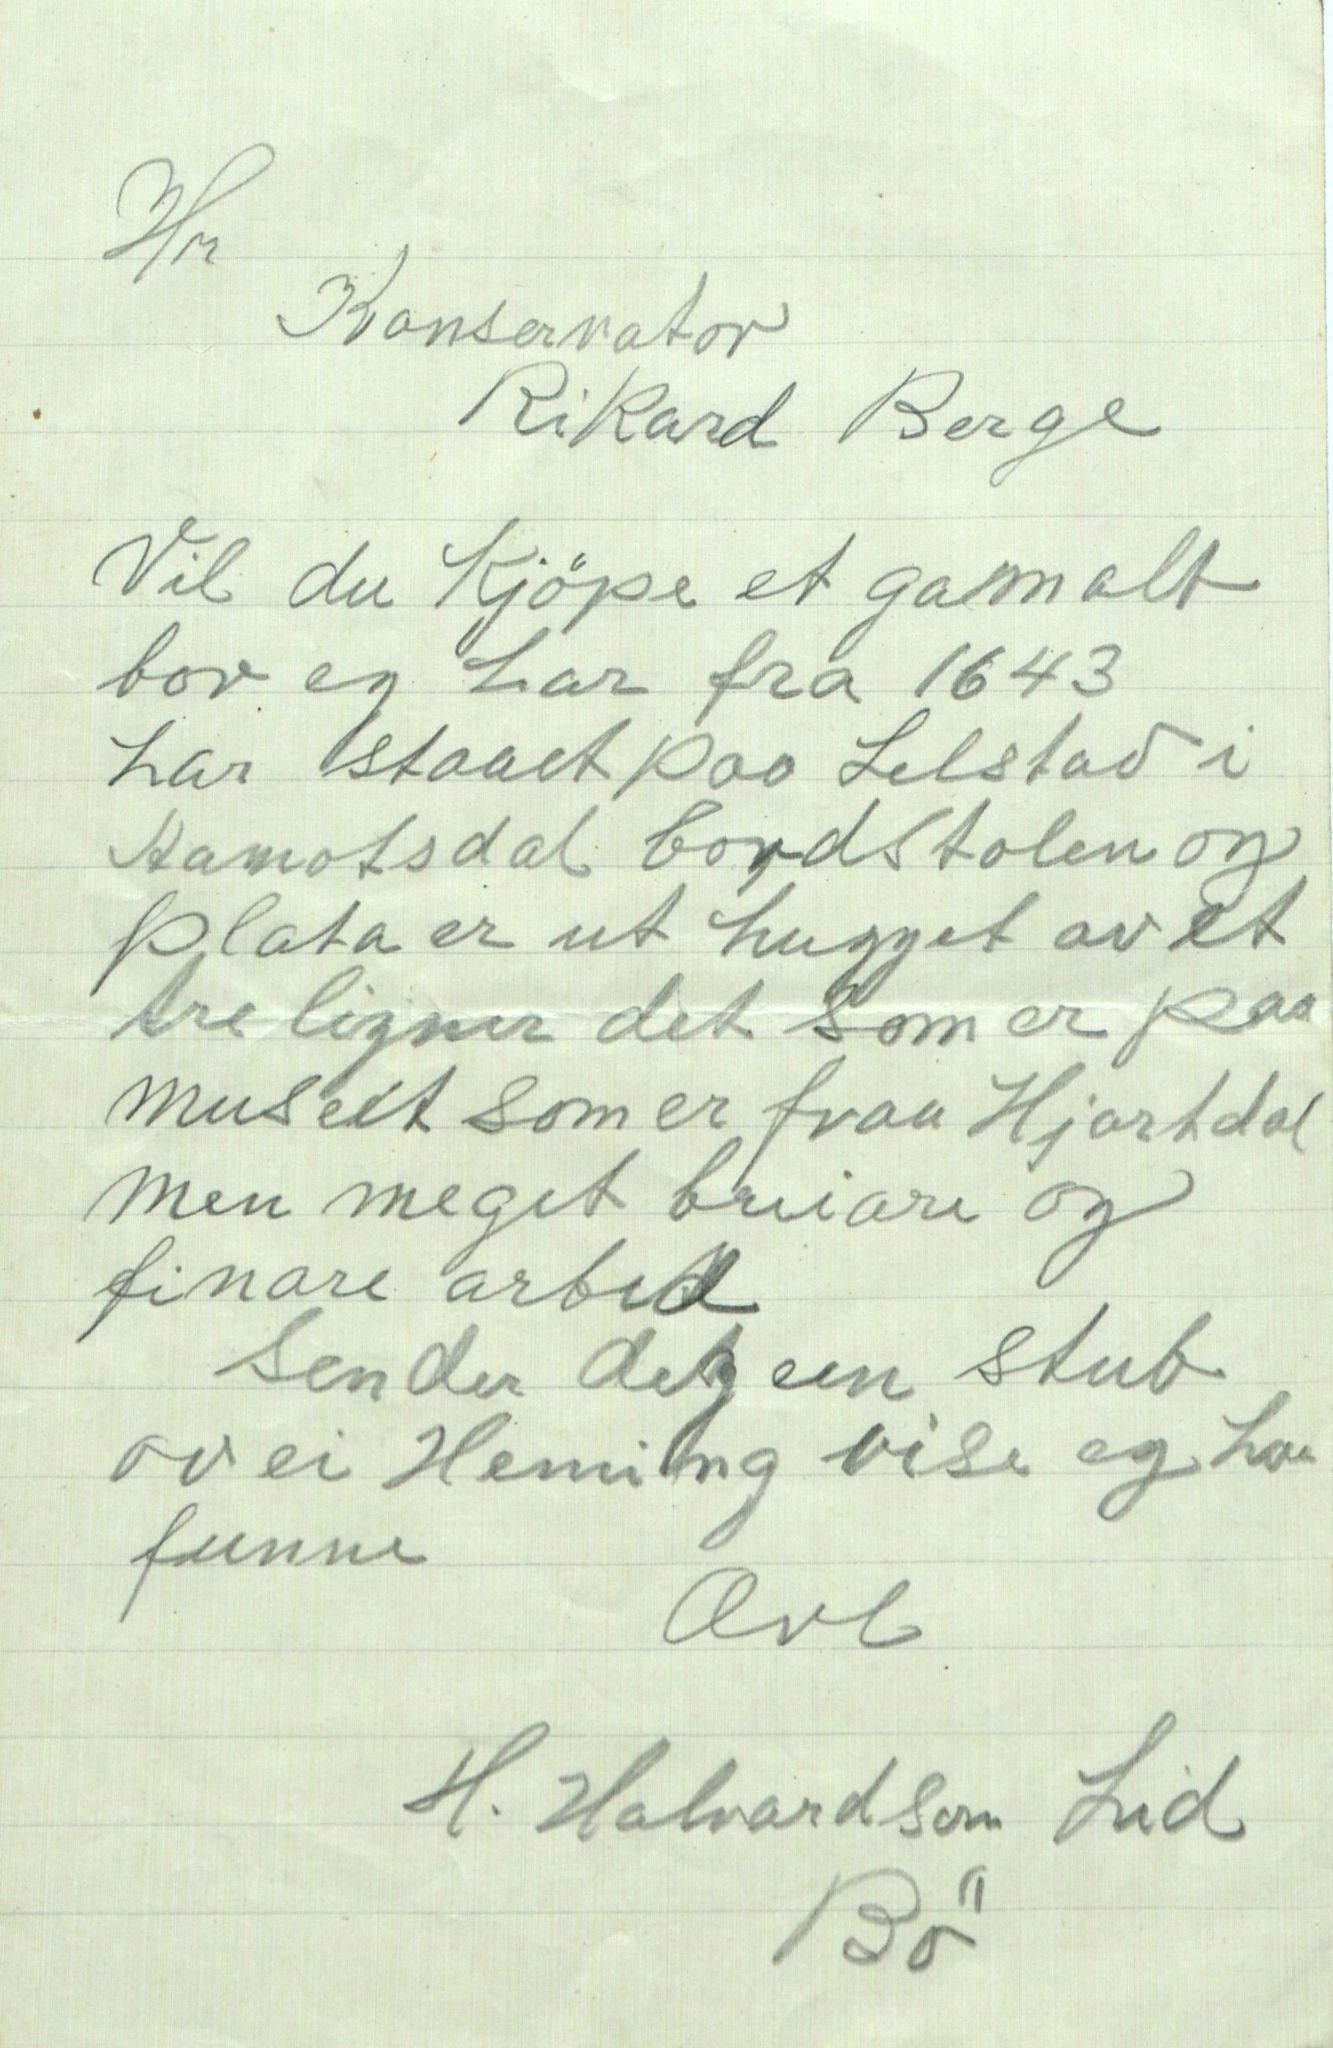 Hr
Konservator
Rikard Berge
Vil du Kjöpe et gammalt
bor eg har fra 1643
har staaet paa Selstad i
Aamotsdal bordstolen og
plata er ut hugget av et
tre ligner det som er paa
museet som er fraa Hjartdal
men meget breiare og
finare arbeid
Sender deg ein stub
av ei Heming vise eg
funne
Ærb
H. Halvardson Lid
Bö